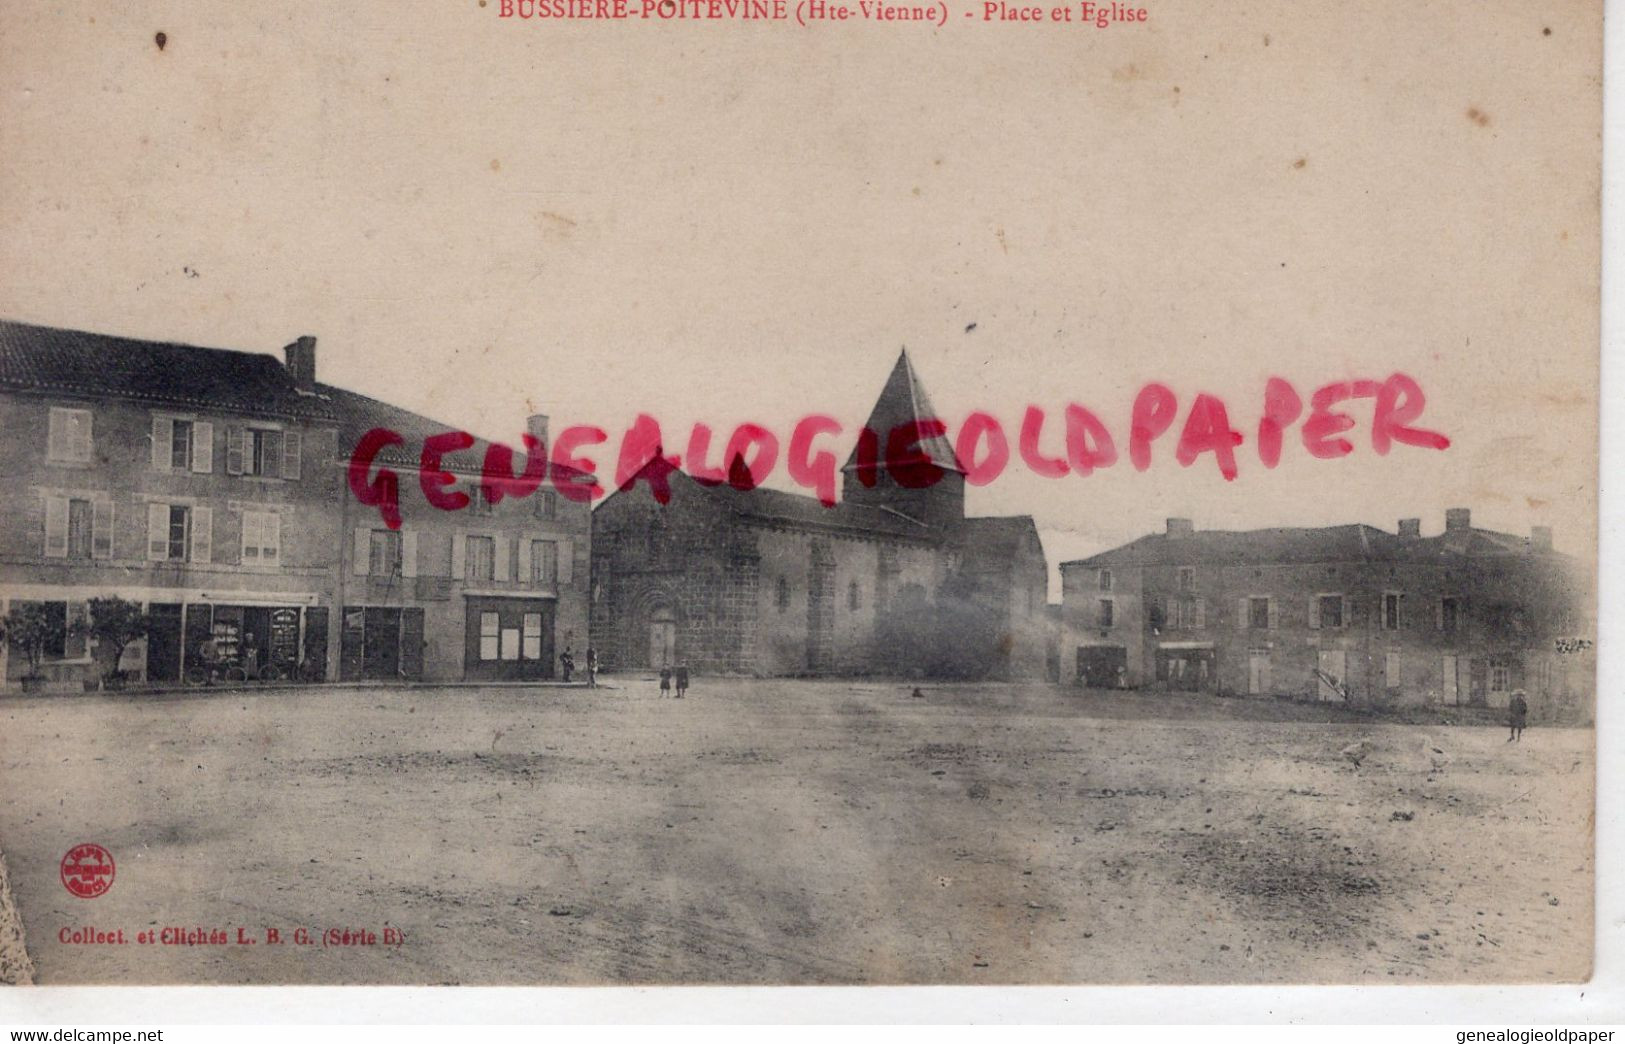 BUSSIERE-POITEVINE (Hte-Vienne) - Place et Eglise
GENEALOGIEOLDPAPER
IMPR
NANCY
Collect. et Clichés L. B. G. (Série B)
www.delcampe.net
genealogieoldpaper